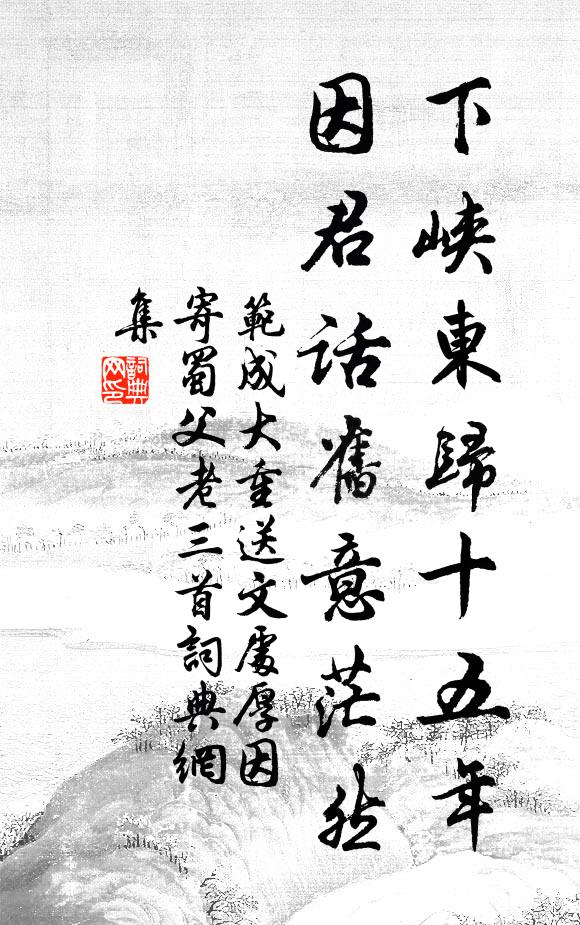 下峽東歸十五年
因君話舊意茫然
範成大重送文處厚因
寄蜀父老三首詞典網
集
詞典
網印